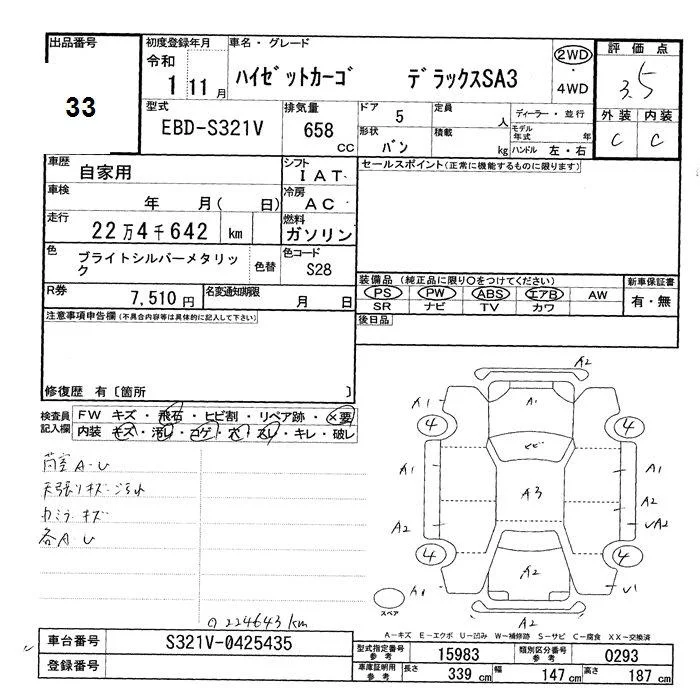 出品番号
33
初度登録年月
令和
1 11月
車名・グレード
ハイゼットカーゴ デラックスSA3
2WD
・
4WD
評価点
3.5
外装 内装
C C
型式
EBD-S321V
排気量
658
cc
ドア 5
形状 バン
定員 人
積載 kg
ディーラー・並行
モデル年式 年
ハンドル 左・右
車歴
自家用
シフト
IAT
車検
年 月( 日)
冷房
AC
走行
22万4千642 km
燃料
ガソリン
色
ブライトシルバーメタリック
色替
色コード
S28
R券
7,510円
名変通知期限
月 日
セールスポイント(正常に機能するものに限ります)
装備品 (純正品に限り○をつけてください)
PS PW ABS エアB AW
SR ナビ TV カワ
新車保証書
有・無
後日品
注意事項申告欄(不具合内容等は具体的に記入して下さい)
修復歴 有〔箇所 〕
検査員
記入欄
FW キズ・飛石・ヒビ割・リペア跡・×要
内装 キズ・汚レ・コゲ・穴・スレ・キレ・破レ
荷室A・U
天張リキズ・汚れ
カミラ・キズ
各A・U
224643km
A2
A1
A1
4
4
ヒビ
A1
A1
A3
A2
A2
A2
4
4
A2
A1
U1
A2
スペア
A-キズ E-エクボ U-凹み W-補修跡 S-サビ C-腐食 XX-交換済
車台番号
S321V-0425435
登録番号
型式指定番号
参考
15983
類別区分番号
参考
0293
車庫証明用
参考
長さ 339 cm
幅 147 cm
高さ 187 cm